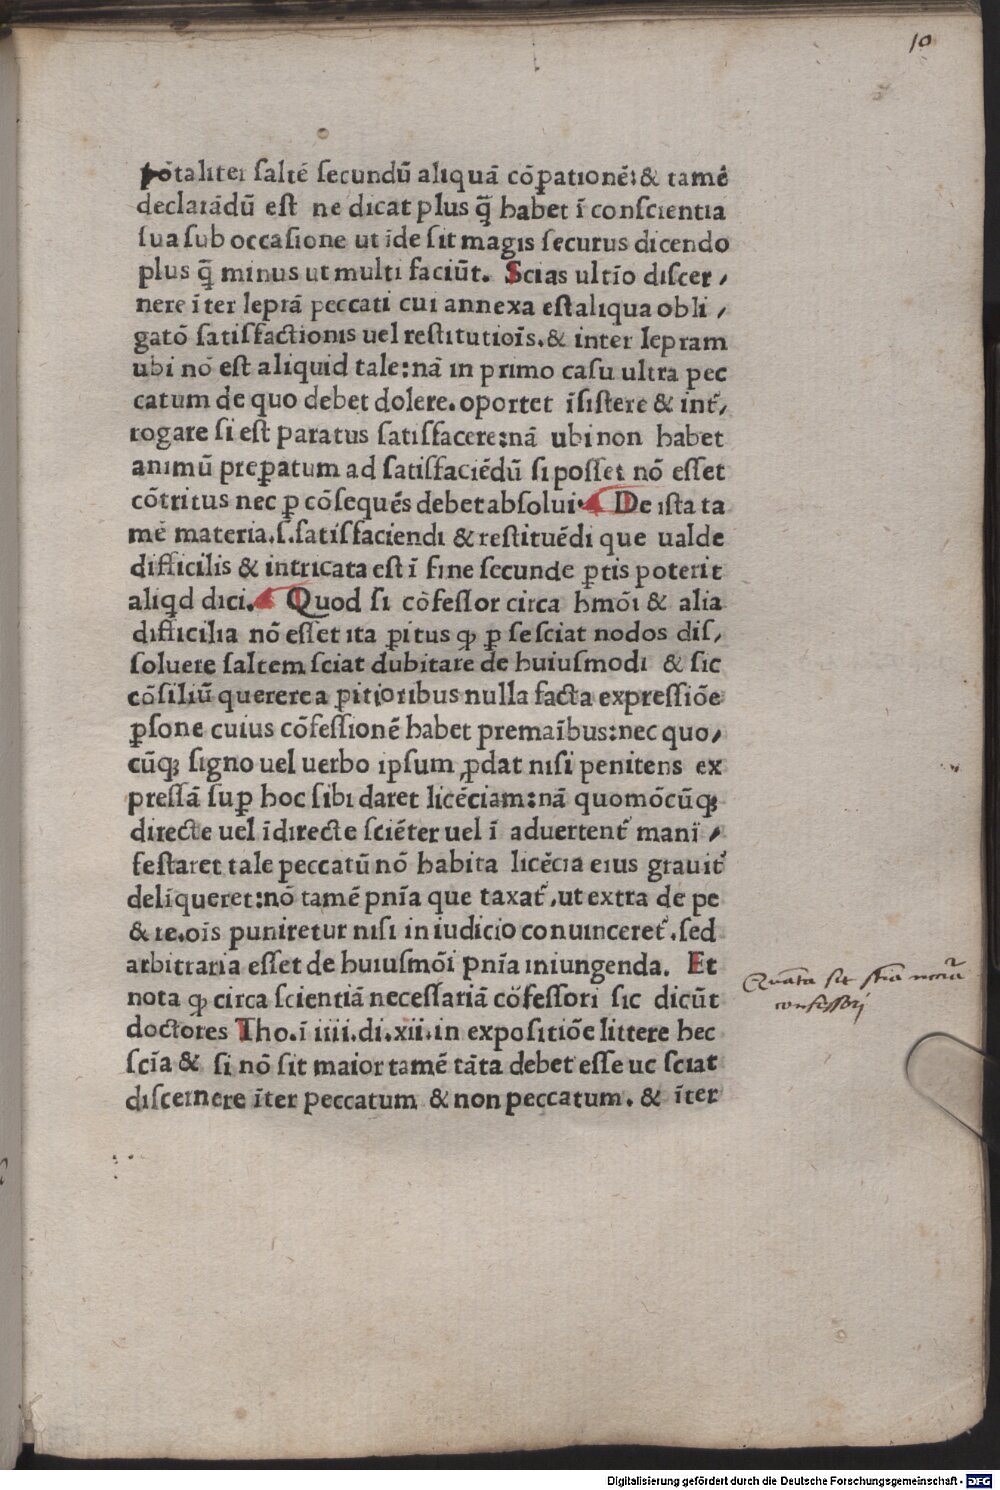 10
põtaliter ſaltẽ ſecundũ aliquã cõꝑationẽ: & tamẽ
declarãdũ eſt ne dicat plus q̃ habet ĩ conſcientia
ſua ſub occaſione ut ĩde ſit magis ſecurus dicendo
plus q̃ minus ut multi faciũt. Scias ultĩo diſcer⸝
nere ĩter leprã peccati cui annexa eſt aliqua obli⸝
gatõ ſatiſfactionis uel reſtitutiõis. & inter lepram
ubi nõ eſt aliquid tale: nã in primo caſu ultra pec
catum de quo debet dolere. oportet ĩſiſtere & int̉⸝
rogare ſi eſt paratus ſatiſfacere: nã ubi non habet
animũ preꝑatum ad ſatiſfaciẽdũ ſi poſſet nõ eſſet
cõtritus nec ꝑ cõſequẽs debet abſolui. De iſta ta
mẽ materia. ſ. ſatiſfaciendi & reſtituẽdi que ualde
difficilis & intricata eſt ĩ fine ſecunde ꝑtis poterit
aliqd dici. Quod ſi cõfeſſor circa hmõi & alia
difficilia nõ eſſet ita ꝑitus ꝙ ꝑ ſe ſciat nodos diſ⸝
ſoluere ſaltem ſciat dubitare de huiuſmodi & ſic
cõſiliũ querere a ꝑitioribus nulla facta expreſſiõe
ꝑſone cuius cõfeſſionẽ habet pre manĩbus: nec quo⸝
cũqꝫ ſigno uel uerbo ipſum ꝓdat niſi penitens ex
preſſã ſuꝑ hoc ſibi daret licẽciam: nã quomõcũqꝫ
directe uel ĩdirecte ſciẽter uel ĩ aduertent̉ mani⸝
feſtaret tale peccatũ nõ habita licẽcia eius grauit̉
deliqueret: nõ tamẽ pnĩa que taxat̉. ut extra de pe
& re. oĩs puniretur niſi in iudicio conuinceret̉. ſed
arbitraria eſſet de huiuſmõi pnĩa iniungenda. Et
nota ꝙ circa ſcientiã neceſſariã cõfeſſori ſic dicũt
doctores Tho. ĩ iiii. di. xii. in expoſitiõe littere hec
ſcĩa & ſi nõ ſit maior tamẽ tãta debet eſſe uc ſciat
diſcernere ĩter peccatum & non peccatum. & ĩter
Quãta ſit ſtĩa nccĩã
confeſſorj
Digitalisierung gefördert durch die Deutsche Forschungsgemeinschaft - DFG